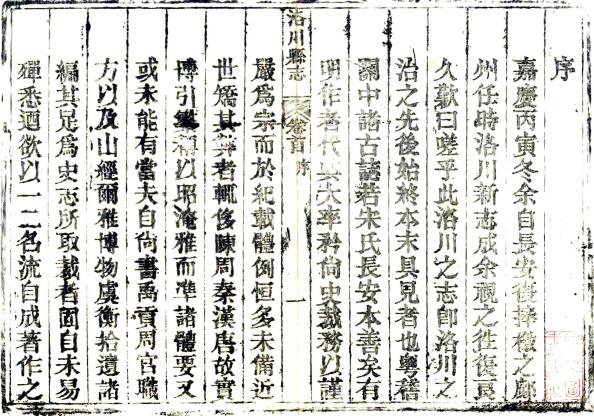 序
嘉慶丙寅冬余自長安復捧檄之鄜
州任時洛川新志成余視之往復良
久歎曰嗟乎此洛川之志卽洛川之
治之先後始終本末具見者也粵稽
關中諸古誌若宋氏長安本善矣有
明作者代興大率矜尙史裁務以謹
洛川縣志 卷首 序 一
嚴爲宗而於紀載體例恒多未備近
世矯其弊者輒侈陳周秦漢唐故實
博引繁稱以昭淹雅而準諸體要又
或未能有當夫自尙書禹貢周官職
方以及山經爾雅博物虞衡拾遺諸
編其足爲史志所取裁者固自未易
殫悉迺欲以一二名流自成著作之